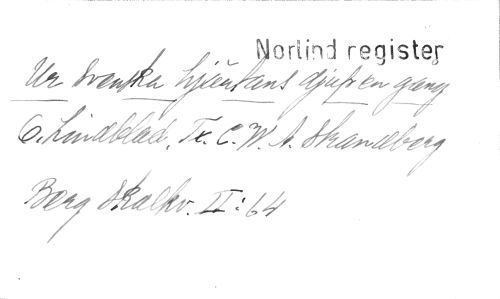 Norlind register
Ur Svenska hjertans djup en gång
O. Lindblad, Tx. C. W. A. Strandberg
Berg Skalkv. II:64